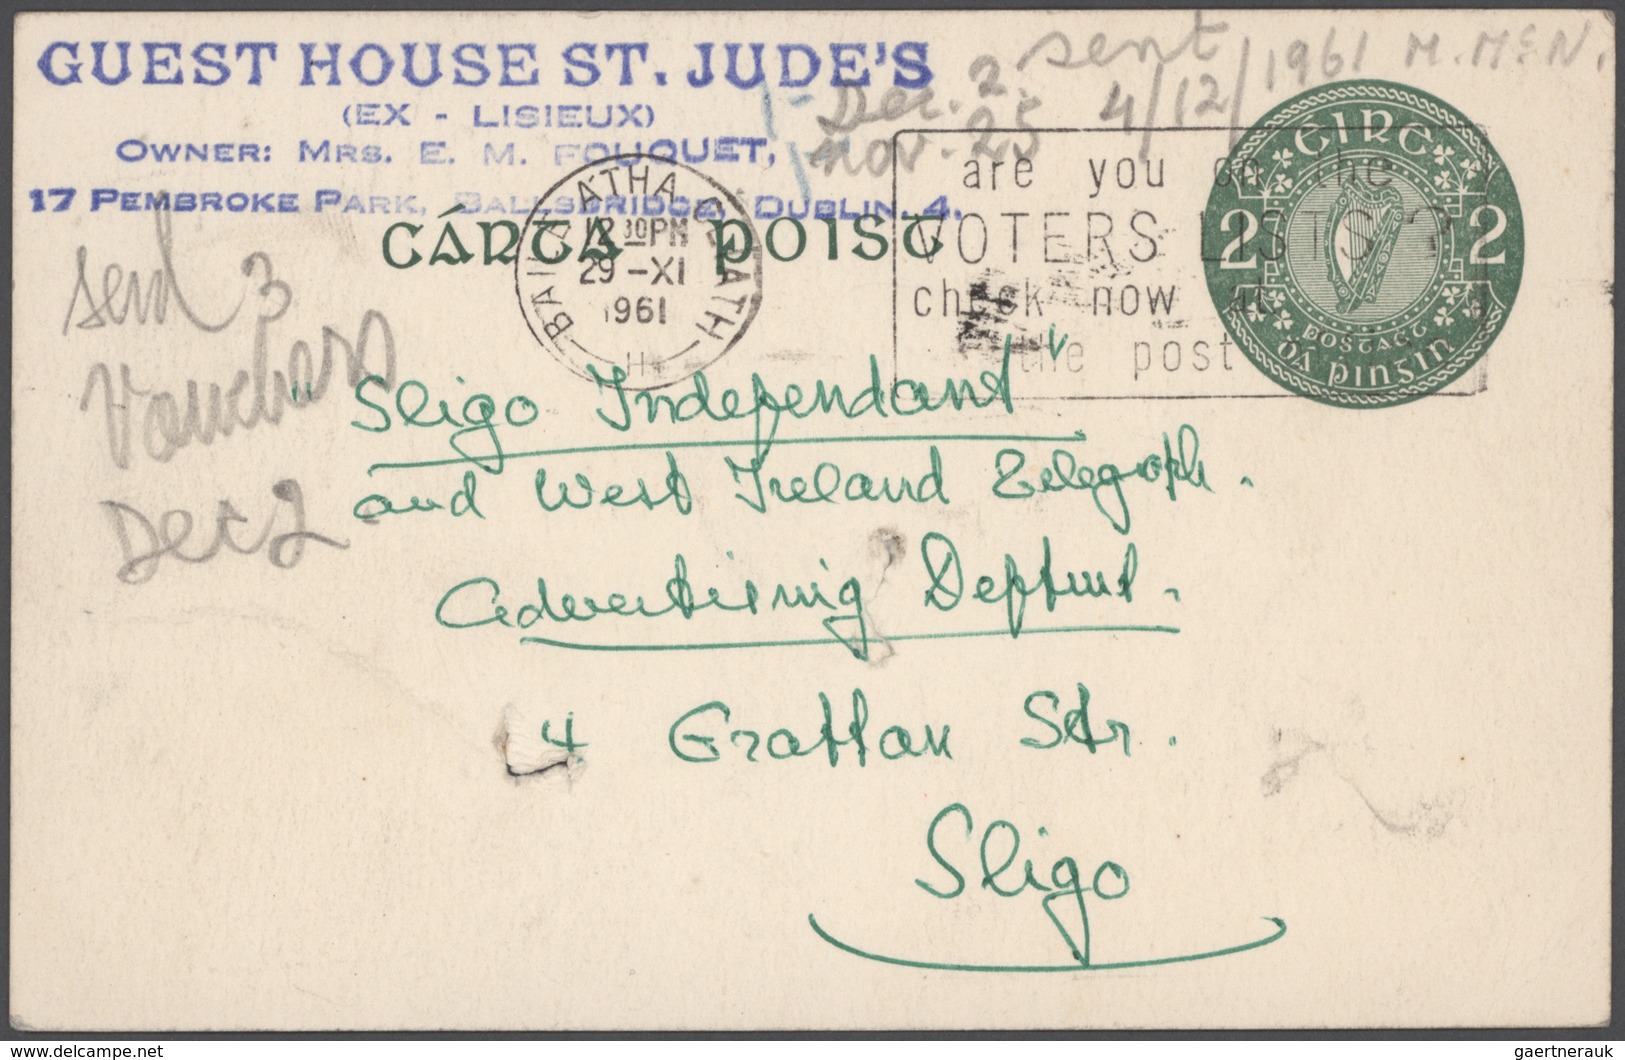 GUEST HOUSE ST. JUDE'S
(EX - LISIEUX)
OWNER: MRS. E. M. FOUQUET,
17 PEMBROKE PARK, BALLSBRIDGE, DUBLIN. 4.
sent
Dec. 2. 4/12/1961 M. McN.
Nov. 25
CÁRTA POIST
BAILE ÁTHA CLIATH
12 30PM
29 -XI
1961
are you on the
VOTERS LISTS?
check now at
the post
ÉIRE
2 2
POSTAGE
DÁ PINGIN
send 3
Vouchers
Dec 2
" Sligo Independant "
and West Ireland Telegraph.
Advertising Deptmt.
4 Grattan Str.
Sligo
gaertnerauk